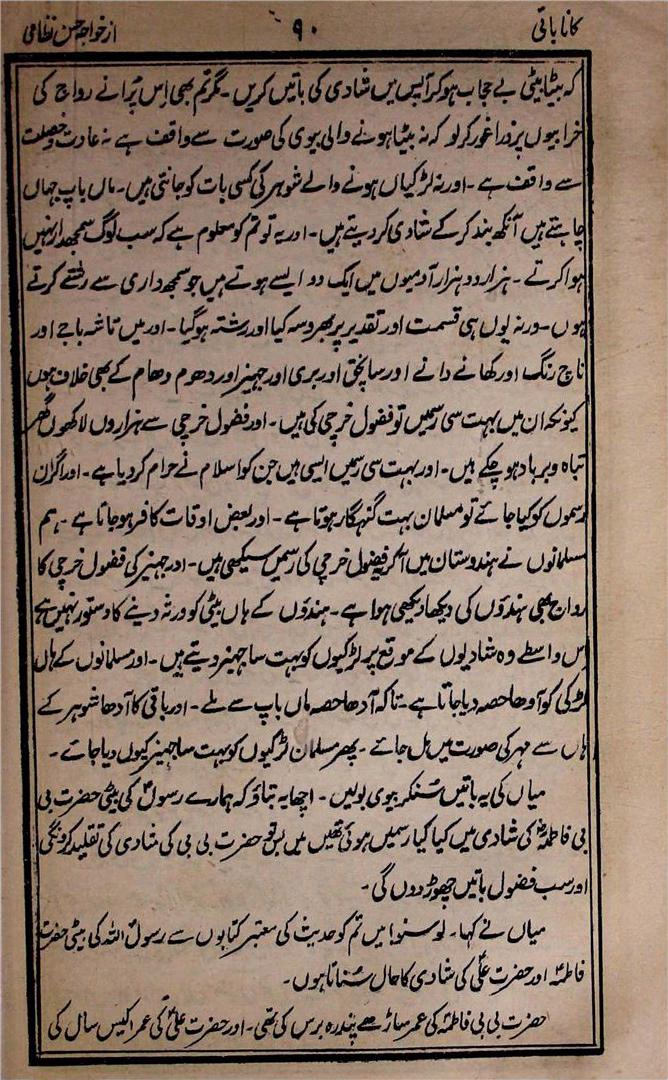 کانا باتی ۹۰ از خواجہ حسن نظامی
کہ بیٹا بیٹی بے حجاب ہوکر آپس میں شادی کی باتیں کریں۔ مگر تم بھی اِس پُرانے رواج کی
خرابیوں پر ذرا غور کرلو کہ نہ بیٹا ہونے والی بیوی کی صورت سے واقف ہے نہ عادت و خصلت
سے واقف ہے۔ اور نہ لڑکیاں ہونے والے شوہر کی کسی بات کو جانتی ہیں۔ ماں باپ جہاں
چاہتے ہیں آنکھ بند کرکے شادی کردیتے ہیں۔ اور یہ تو تم کو معلوم ہے کہ سب لوگ سمجھدار نہیں
ہوا کرتے۔ ہزار دو ہزار آدمیوں میں ایک دو ایسے ہوتے ہیں جو سمجھ داری سے رشتے کرتے
ہوں۔ ورنہ یوں ہی قسمت اور تقدیر پر بھروسہ کیا اور رشتہ ہوگیا۔ اور میں تاشہ باجے اور
ناچ رنگ اور کھانے دانے اور ساچق اور بری اور جہیز اور دھوم دھام کے بھی خلاف ہوں
کیونکہ ان میں بہت سی رسمیں تو فضول خرچی کی ہیں۔ اور فضول خرچی سے ہزاروں لاکھوں گھر
تباہ و برباد ہوچکے ہیں۔ اور بہت سی رسمیں ایسی ہیں جن کو اسلام نے حرام کردیا ہے۔ اور اگر ان
رسموں کو کیا جائے تو مسلمان بہت گنہگار ہوتا ہے۔ اور بعض اوقات کافر ہوجاتا ہے۔ ہم
مسلمانوں نے ہندوستان میں آکر فضول خرچی کی رسمیں سیکھی ہیں۔ اور جہیز کی فضول خرچی کا
رواج بھی ہندؤں کی دیکھا دیکھی ہوا ہے۔ ہندؤں کے ہاں بیٹی کو ورثہ دینے کا دستور نہیں ہے
اس واسطے وہ شادیوں کے موقع پر لڑکیوں کو بہت سا جہیز دیتے ہیں۔ اور مسلمانوں کے ہاں
لڑکی کو آدھا حصہ دیا جاتا ہے۔ تاکہ آدھا حصہ ماں باپ سے ملے۔ اور باقی کا آدھا شوہر کے
ہاں سے مہر کی صورت میں مل جائے۔ پھر مسلمان لڑکیوں کو بہت سا جہیز کیوں دیا جائے۔
میاں کی یہ باتیں سُنکر بیوی بولیں۔ اچھا یہ بتاؤ کہ ہمارے رسولؐ کی بیٹی حضرت بی
بی فاطمہؓ کی شادی میں کیا کیا رسمیں ہوئی تھیں میں بس تو حضرت بی بی کی شادی کی تقلید کرونگی
اور سب فضول باتیں چھوڑ دوں گی۔
میاں نے کہا۔ لو سنو! میں تم کو حدیث کی معتبر کتابوں سے رسولؐ اللہ کی بیٹی حضرت
فاطمہؓ اور حضرت علیؓ کی شادی کا حال سُناتا ہوں۔
حضرت بی بی فاطمہؓ کی عمر ساڑھے پندرہ برس کی تھی۔ اور حضرت علیؓ کی عمر اکیس سال کی